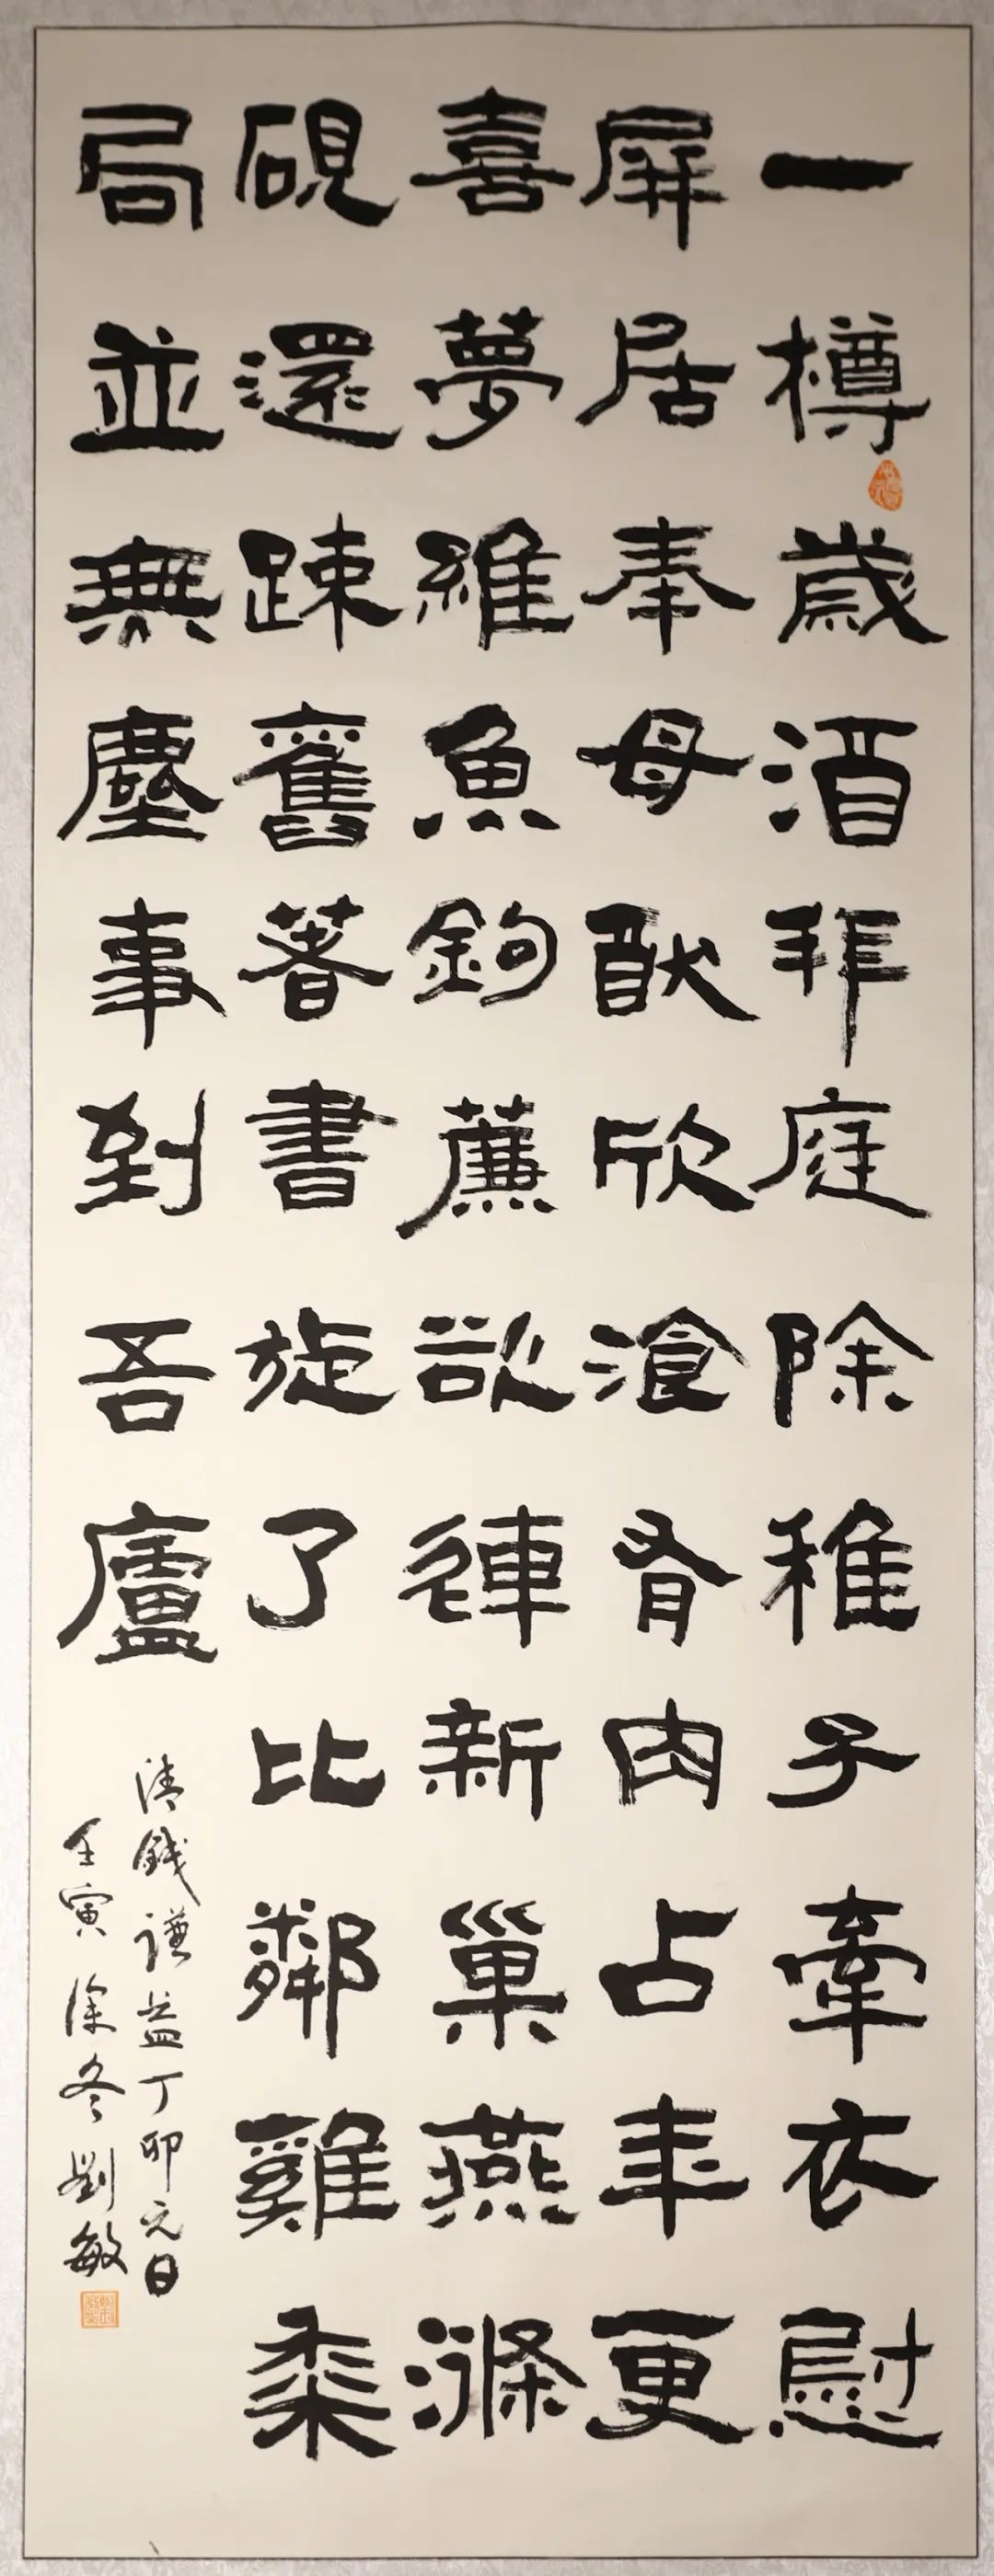 一樽歲酒拜庭除稚子牽衣慰
屏居奉母猷欣湌有肉占年更
喜夢維魚鉤薕欲連新巢燕滌
硯還踈舊著書旋了比鄰雞黍
局並無塵事到吾廬
清錢謙益丁卯元日
壬寅深冬劉敏